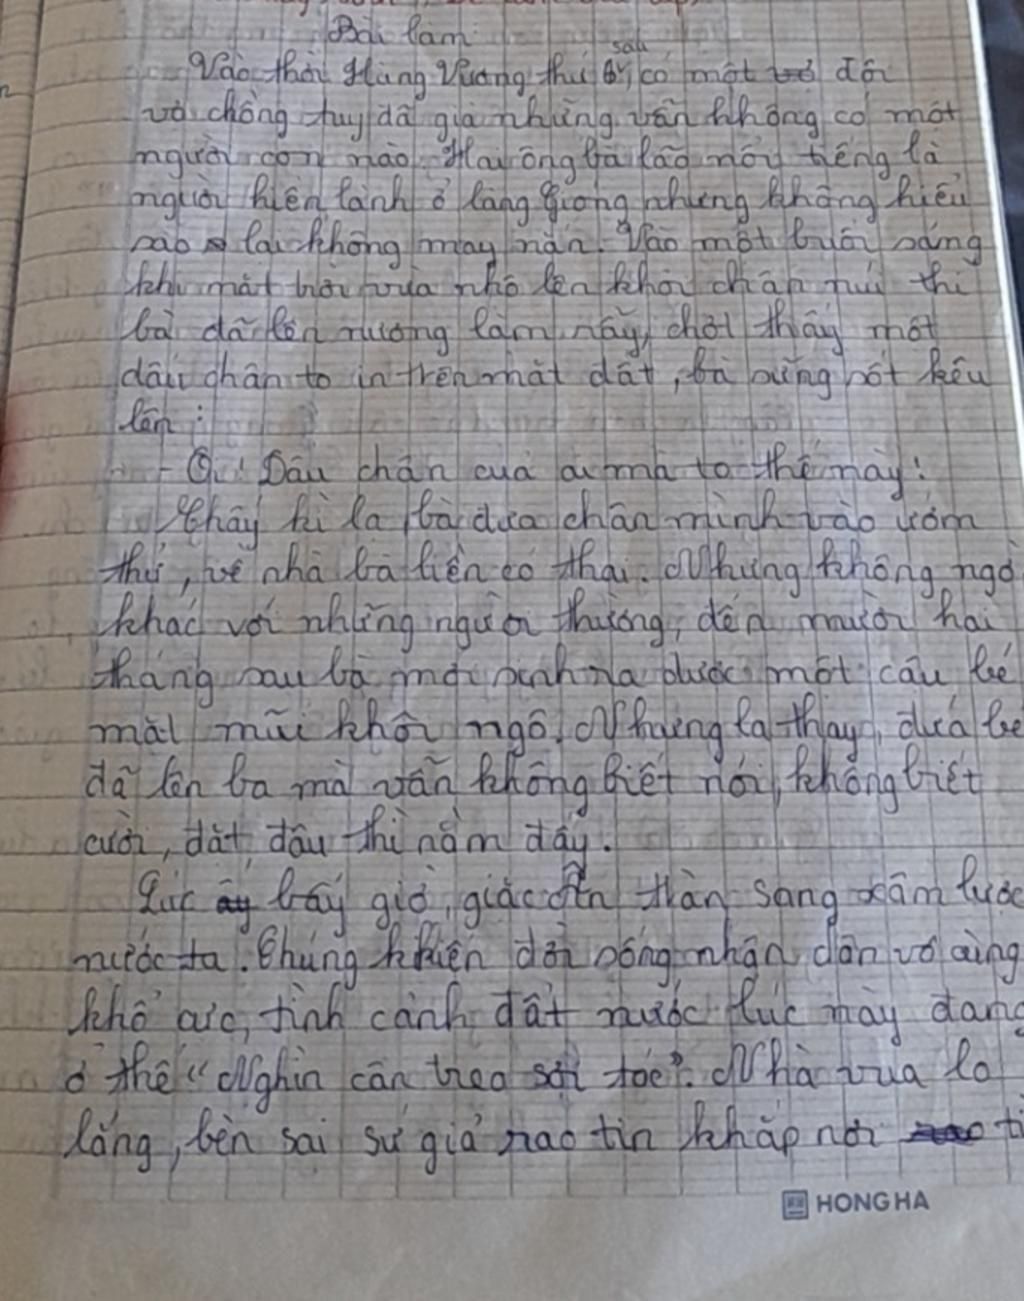 Bài làm
Vào thời Hùng Vương thứ 6, sáu có một đôi
vợ chồng tuy đã già nhưng vẫn không có một
người con nào. Hai ông bà lão nổi tiếng là
người hiền lành ở làng Gióng nhưng không hiểu
sao lại không may mắn. Vào một buổi sáng
khi mặt trời vừa nhô lên khỏi chân núi thì
bà đã lên nương làm rẫy, chợt thấy một
dấu chân to in trên mặt đất, bà sửng sốt kêu
lên:
- Ôi! Dấu chân của ai mà to thế này!
Thấy kì lạ bà đưa chân mình vào ướm
thử, về nhà bà liền có thai. Nhưng không ngờ
khác với những người thường, đến mười hai
tháng sau bà mới sinh ra được một cậu bé
mặt mũi khôi ngô. Nhưng lạ thay, đứa bé
đã lên ba mà vẫn không biết nói, không biết
cười, đặt đâu thì nằm đấy.
Lúc ấy bấy giờ, giặc Ân tràn sang xâm lược
nước ta. Chúng khiến đời sống nhân dân vô cùng
khổ cực, tình cảnh đất nước lúc này đang
ở thế "Nghìn cân treo sợi tóc". Nhà vua lo
lắng, bèn sai sứ giả rao tin khắp nơi
HONG HA